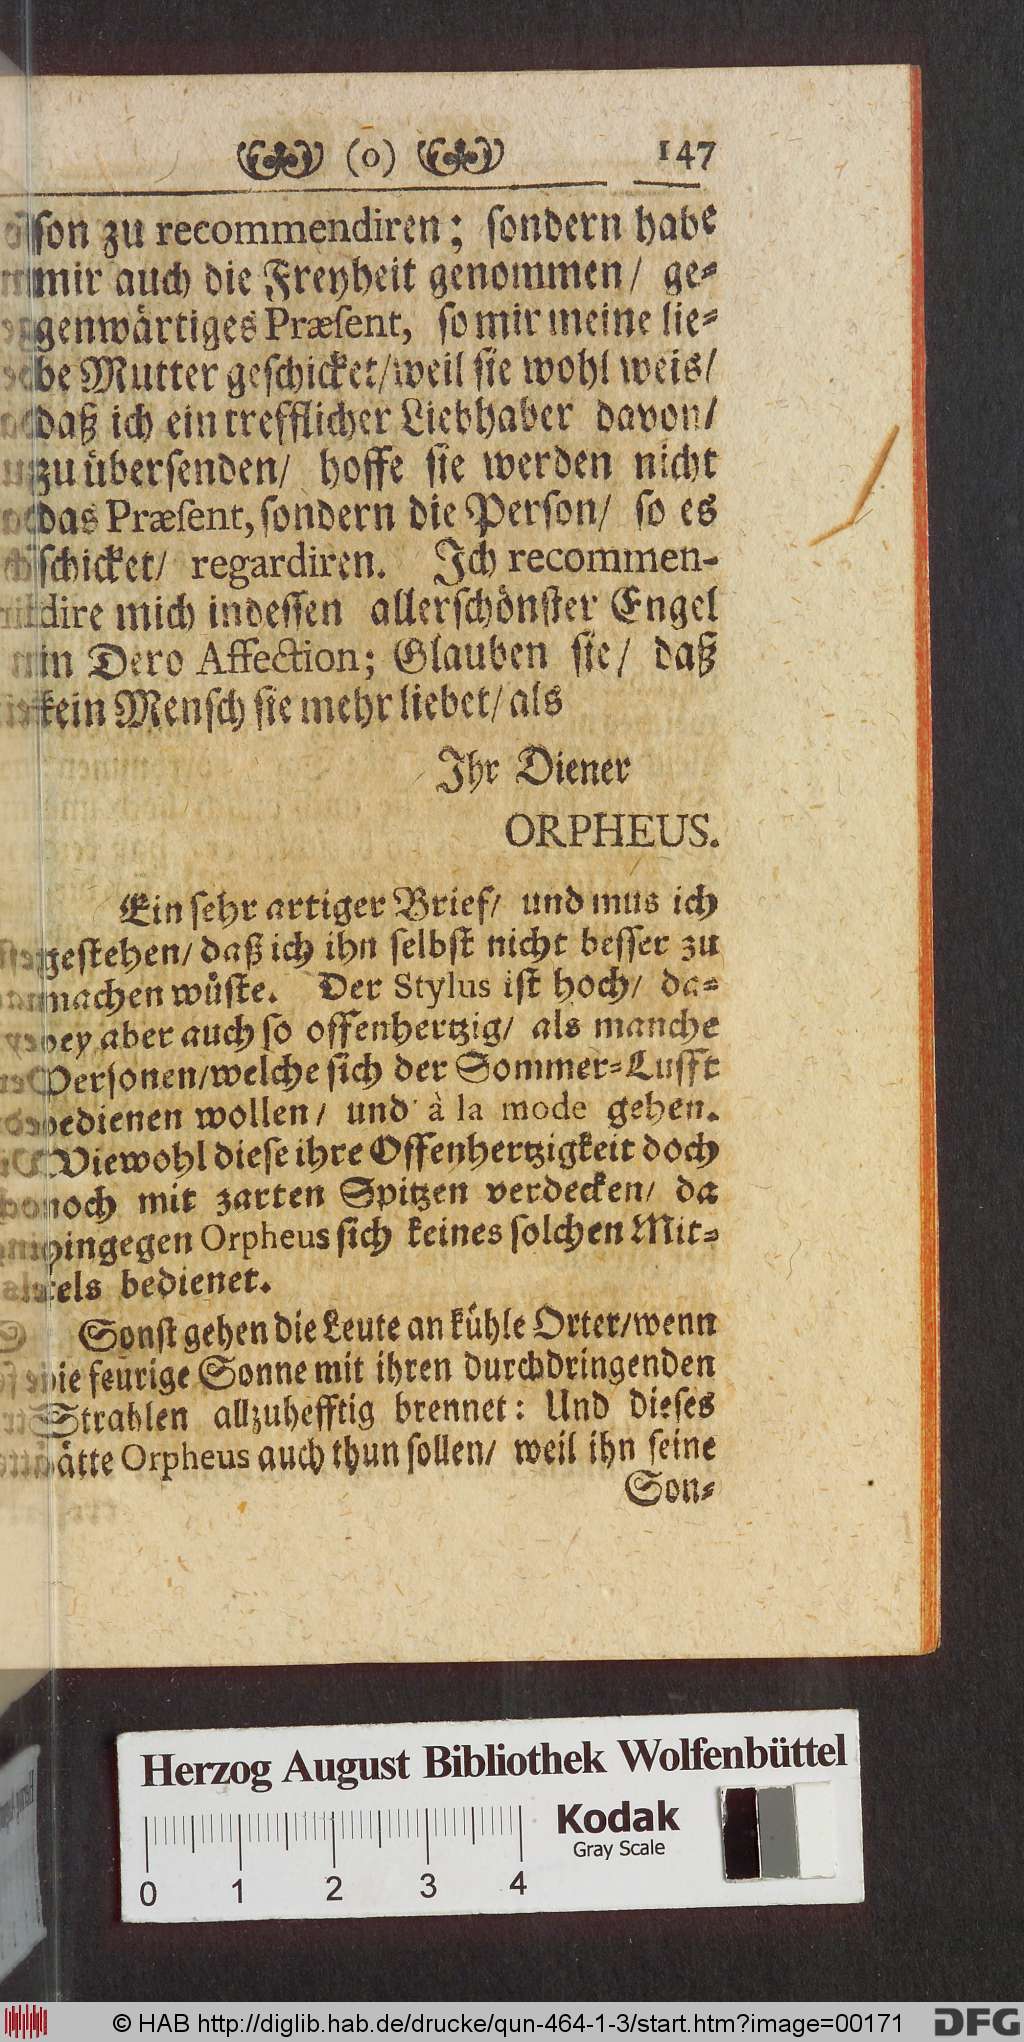 (o) 147
son zu recommendiren; sondern habe
mir auch die Freyheit genommen/ ge-
genwärtiges Præsent, so mir meine lie-
be Mutter geschicket/weil sie wohl weis/
daß ich ein trefflicher Liebhaber davon/
zu übersenden/ hoffe sie werden nicht
das Præsent, sondern die Person/ so es
schicket/ regardiren. Ich recommen-
dire mich indessen allerschönster Engel
in Dero Affection; Glauben sie/ daß
kein Mensch sie mehr liebet/ als
Ihr Diener
ORPHEUS.
Ein sehr artiger Brief/ und mus ich
gestehen/ daß ich ihn selbst nicht besser zu
machen wüste. Der Stylus ist hoch/ da-
bey aber auch so offenhertzig/ als manche
Personen/welche sich der Sommer-Lufft
bedienen wollen/ und à la mode gehen.
Wiewohl diese ihre Offenhertzigkeit doch
noch mit zarten Spitzen verdecken/ da
hingegen Orpheus sich keines solchen Mit-
tels bedienet.
Sonst gehen die Leute an kühle Orter/wenn
die feurige Sonne mit ihren durchdringenden
Strahlen allzuhefftig brennet: Und dieses
hätte Orpheus auch thun sollen/ weil ihn seine
Son-
Herzog August Bibliothek Wolfenbüttel
Kodak
Gray Scale
0 1 2 3 4
© HAB http://diglib.hab.de/drucke/qun-464-1-3/start.htm?image=00171
DFG